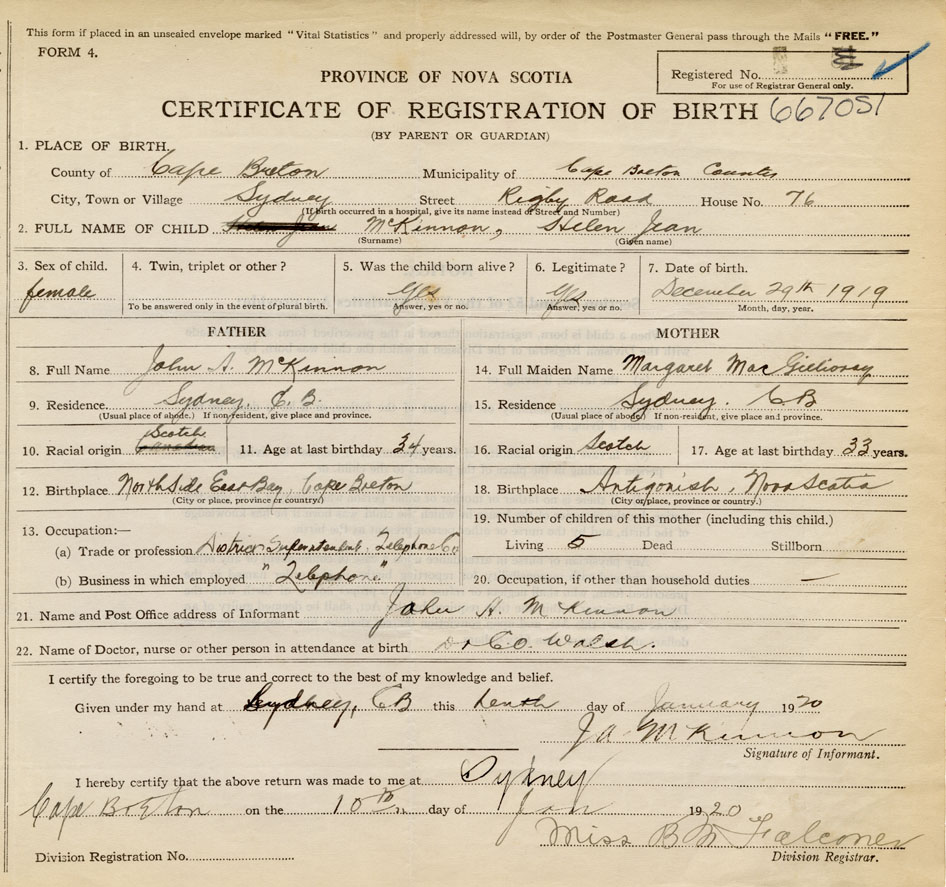 This form if placed in an unsealed envelope marked "Vital Statistics" and properly addressed will, by order of the Postmaster General pass through the Mails "FREE."
FORM 4.
Registered No.
For use of Registrar General only.
PROVINCE OF NOVA SCOTIA
CERTIFICATE OF REGISTRATION OF BIRTH 667051
(BY PARENT OR GUARDIAN)
1. PLACE OF BIRTH.
County of Cape Breton Municipality of Cape Breton County
City, Town or Village Sydney Street Rigby Road House No. 76
(If birth occurred in a hospital, give its name instead of Street and Number)
2. FULL NAME OF CHILD McKinnon, Helen Jean
(Surname) (Given name)
3. Sex of child. 4. Twin, triplet or other? 5. Was the child born alive? 6. Legitimate? 7. Date of birth.
female Yes Yes December 29th 1919
To be answered only in the event of plural birth. Answer, yes or no. Answer, yes or no. Month, day, year.
FATHER MOTHER
8. Full Name John A. McKinnon
9. Residence. Sydney, C.B.
(Usual place of abode.) If non-resident, give place and province.
Scotch
10. Racial origin Canadian 11. Age at last birthday 34 years.
12. Birthplace North Side East Bay, Cape Breton
(City or place, province or country.)
13. Occupation:—
(a) Trade or profession District Superintendent, Telephone Co
(b) Business in which employed "Telephone"
14. Full Maiden Name Margaret MacGillivray
15. Residence Sydney. CB
(Usual place of abode.) If non-resident, give place and province.
16. Racial origin Scotch 17. Age at last birthday 33 years.
18. Birthplace Antigonish, Nova Scotia
(City or place, province or country.)
19. Number of children of this mother (including this child.)
Living 5 Dead Stillborn
20. Occupation, if other than household duties —
21. Name and Post Office address of Informant John A. McKinnon
22. Name of Doctor, nurse or other person in attendance at birth Dr Co. Walsh.
I certify the foregoing to be true and correct to the best of my knowledge and belief.
Given under my hand at Sydney, CB this tenth day of January 1920
J A McKinnon
Signature of Informant.
I hereby certify that the above return was made to me at Sydney
Cape Breton on the 10th day of Jan 1920
Miss B M Falconer
Division Registration No. Division Registrar.